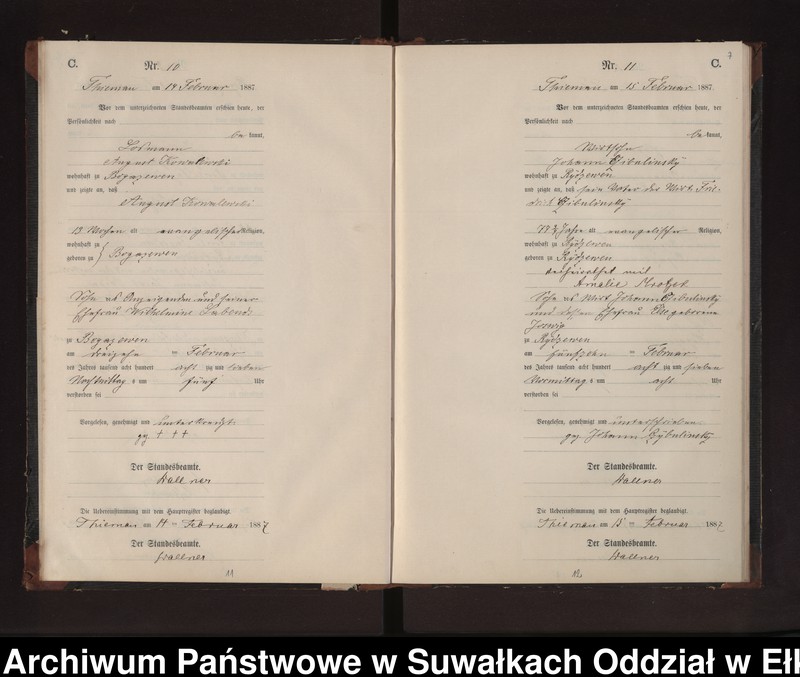 C.
Nr. 10
Thieman am 14 Februar 1887
Vor dem unterzeichneten Standesbeamten erschien heute, der
Persönlichkeit nach
be kannt,
Losmann
August Kowalewski
wohnhaft zu Bogazewen
und zeigte an, daß
August Kowalewski
13 Wochen alt evangelischer Religion,
wohnhaft zu
geboren zu } Bogazewen
Sohn des Anzeigenden und seiner
Ehefrau Wilhelmine
zu Bogazewen
am dreizehn = Februar
des Jahres tausend acht hundert acht zig und sieben
Nachmittag s um fünf Uhr
verstorben sei
Vorgelesen, genehmigt und unterkreuzt
gez † † †
Der Standesbeamte.
Wallner
Die Uebereinstimmung mit dem Hauptregister beglaubigt.
Thieman am 14 = Februar 1887
Der Standesbeamte.
Wallner
11
7
Nr. 11
C.
Thieman am 15 Februar 1887
Vor dem unterzeichneten Standesbeamten erschien heute, der
Persönlichkeit nach
be kannt,
Wirtsohn
Johann Cibulinsky
wohnhaft zu Rydzewen
und zeigte an, daß sein Vater der Wirt Frie-
drich Cibulinsky
Jahre alt evangelischer Religion,
wohnhaft zu Rydzewen
geboren zu Rydzewen
verheirathet mit
Amalie Mrotzek
Sohn des Wirt Johann Cibulinsky
und dessen Ehefrau geborene
Joswig
zu Rydzewen
am fünfzehn = Februar
des Jahres tausend acht hundert acht zig und sieben
Vormittag s um acht Uhr
verstorben sei
Vorgelesen, genehmigt und unterschrieben
gez Johann Cybulinsky
Der Standesbeamte.
Wallner
Die Uebereinstimmung mit dem Hauptregister beglaubigt.
Thieman am 15 = Februar 1887
Der Standesbeamte.
Wallner
12
Archiwum Państwowe w Suwałkach Oddział w Ełk